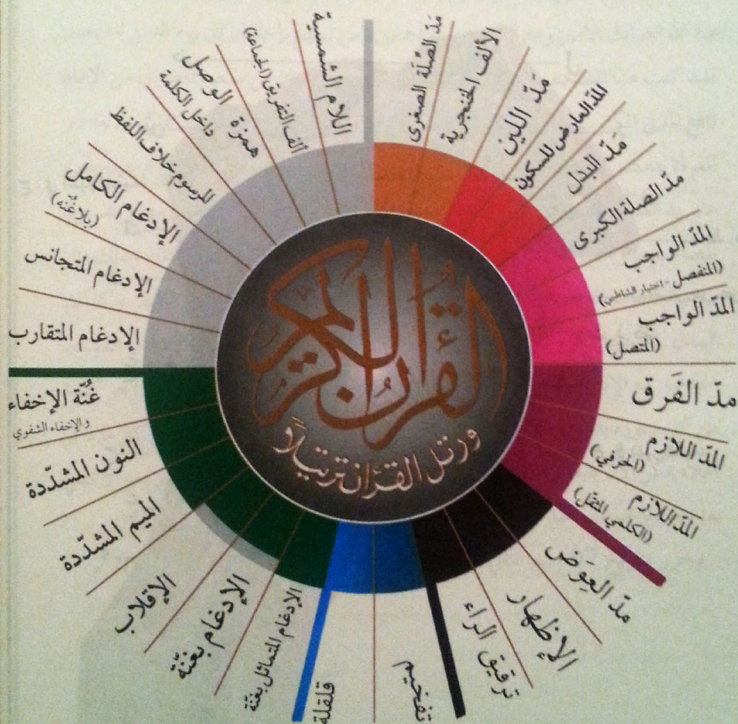 القرآن الكريم
ورتل القرآن ترتيلاً
مَدّ الصّلة الصغرى
الألف الخنجرية
مَدّ اللين
المدّ العارض للسكون
مَدّ البدل
مدّ الصلة الكبرى
المدّ الواجب
(المنفصل - اختيار الشاطبي)
المدّ الواجب
(المتصل)
مدّ الفَرق
المدّ اللازم
(الحرفي)
المدّ اللازم
(الكلمي المثقل)
مدّ العِوَض
الإظهار
ترقيق الراء
تفخيم
قلقلة
الإدغام المتماثل بغنّة
الإدغام بغنّة
الإقلاب
الميم المشدّدة
النون المشدّدة
غُنّة الإخفاء
والإخفاء الشفوي
الإدغام المتقارب
الإدغام المتجانس
الإدغام الكامل
(بلا غُنّه)
المرسوم خلاف اللفظ
همزة الوصل
داخل الكلمة
ألف التفريق (الجماعة)
اللام الشمسية